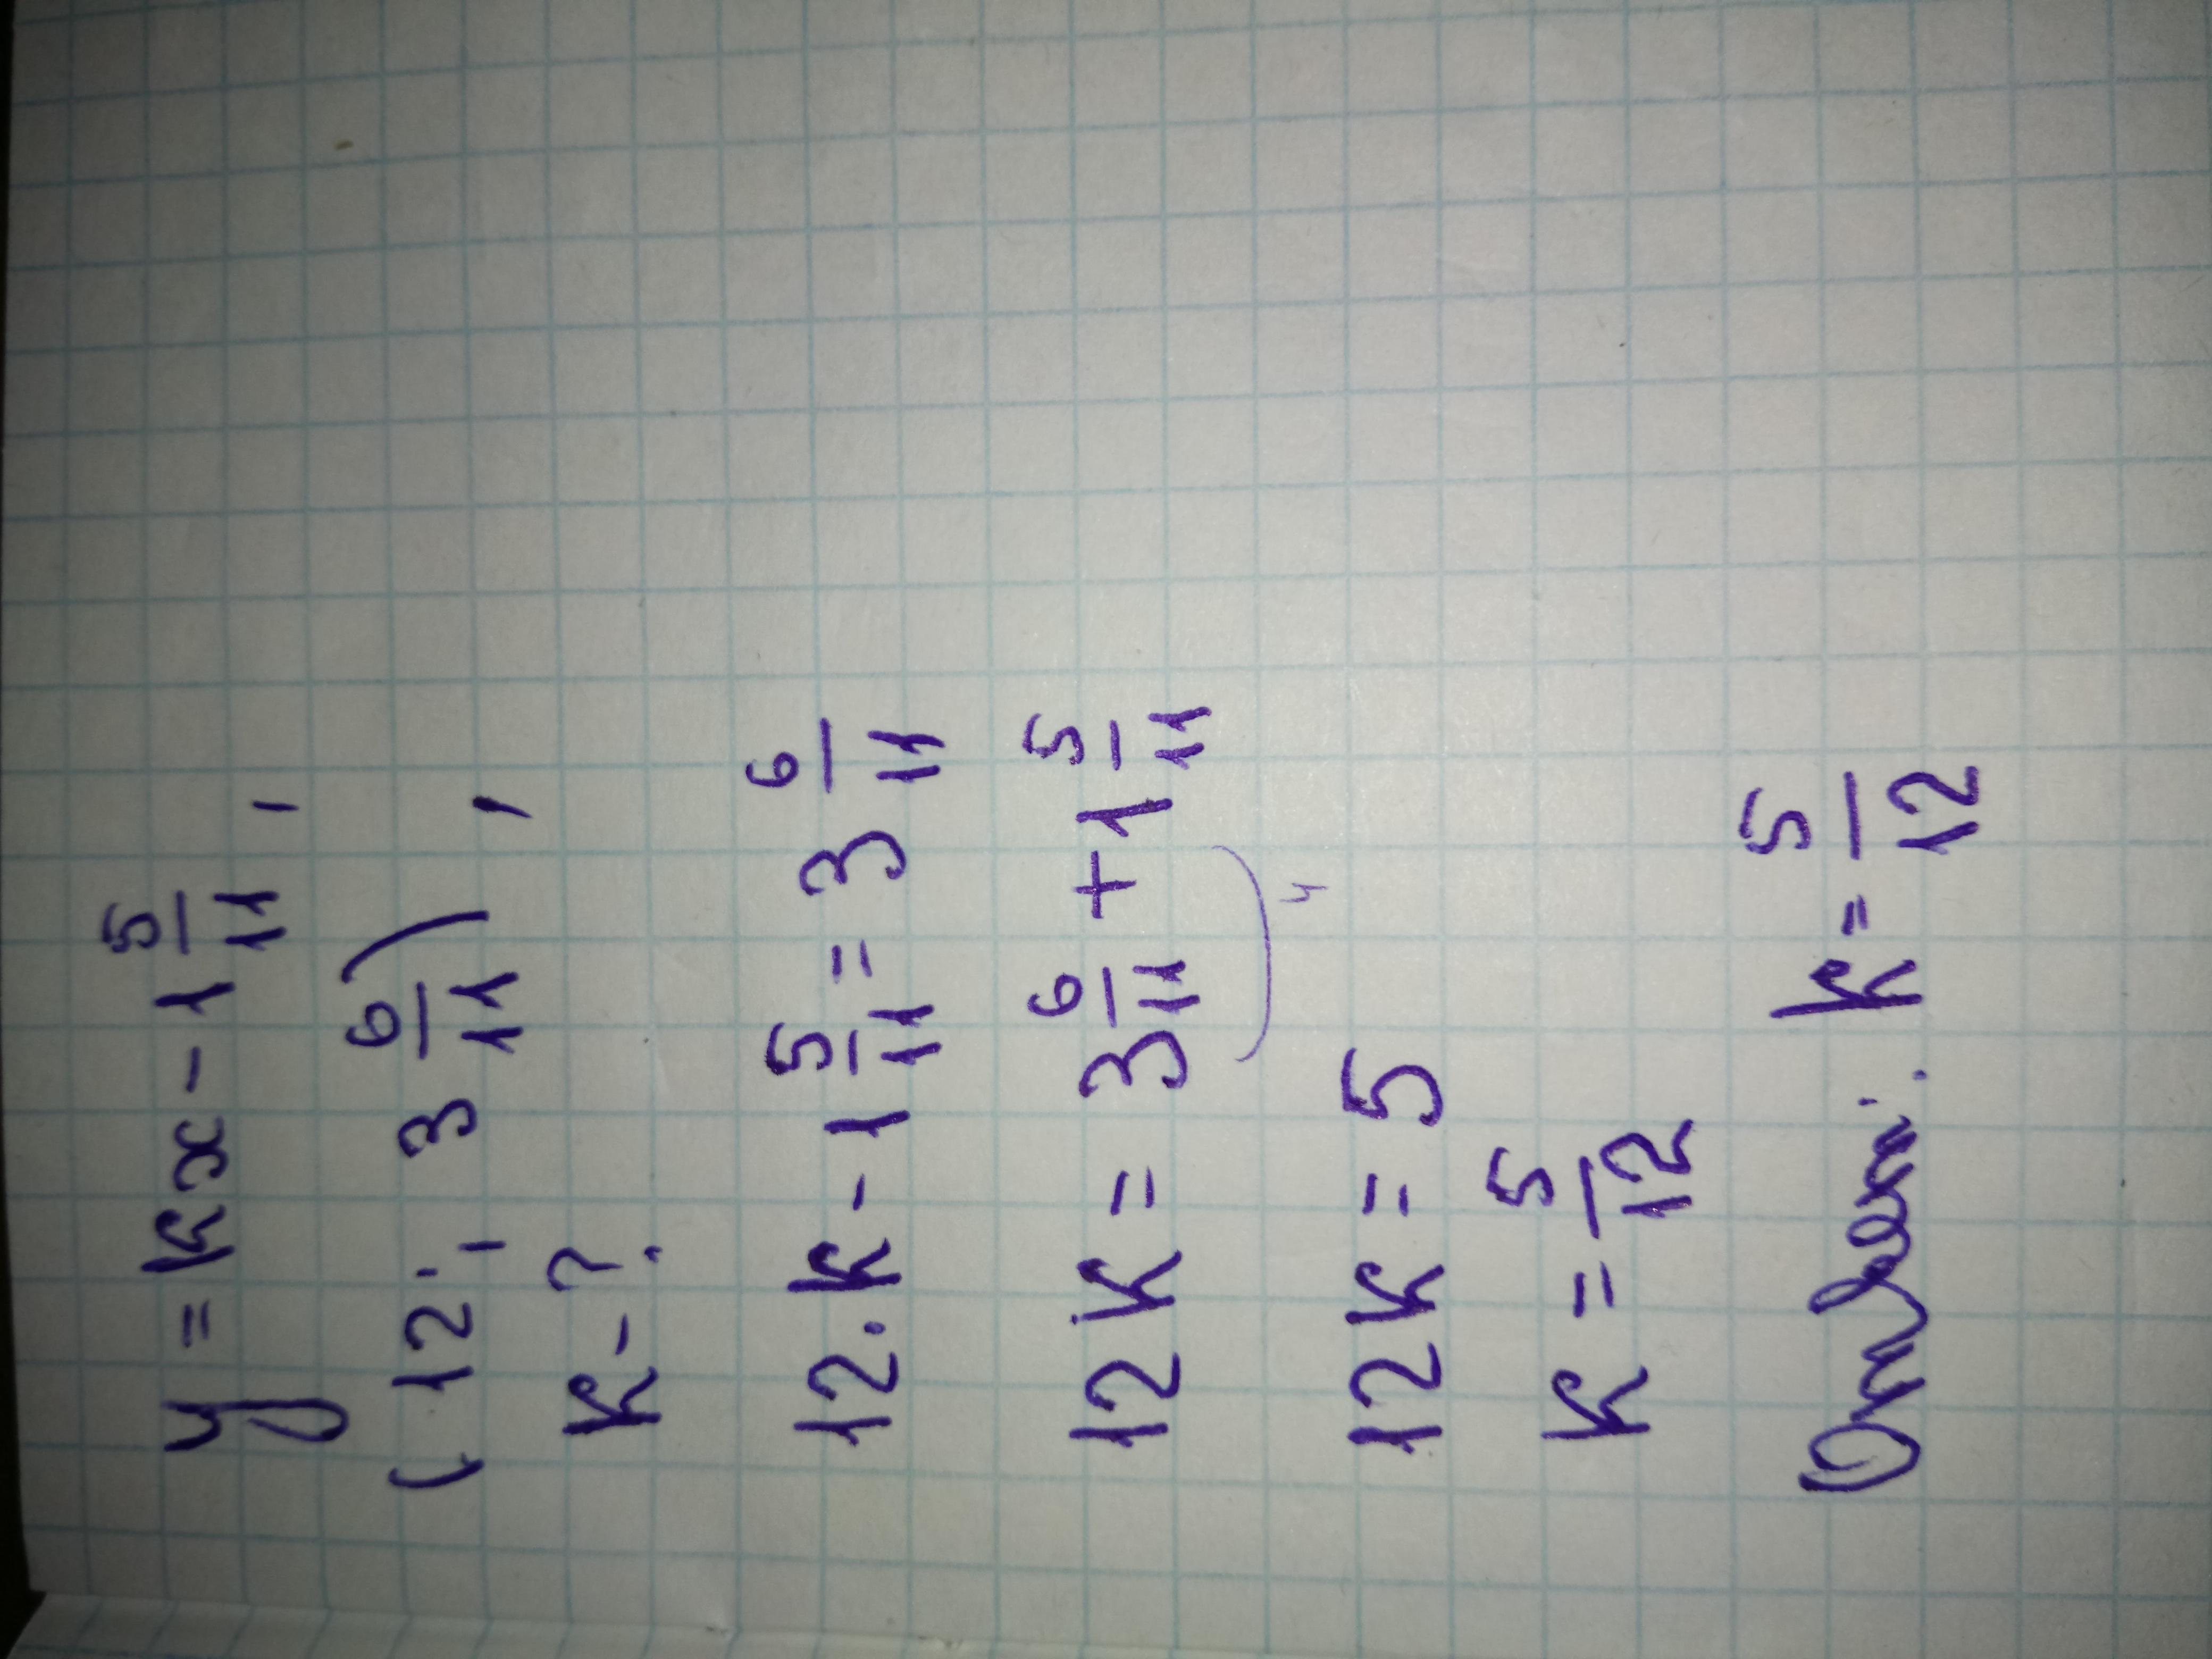 y = kx - 1 5/11 ,
(12; 3 6/11) ,
k - ?
12 · k - 1 5/11 = 3 6/11
12k = 3 6/11 + 1 5/11
4
12k = 5
k = 5/12
Ответ: k = 5/12